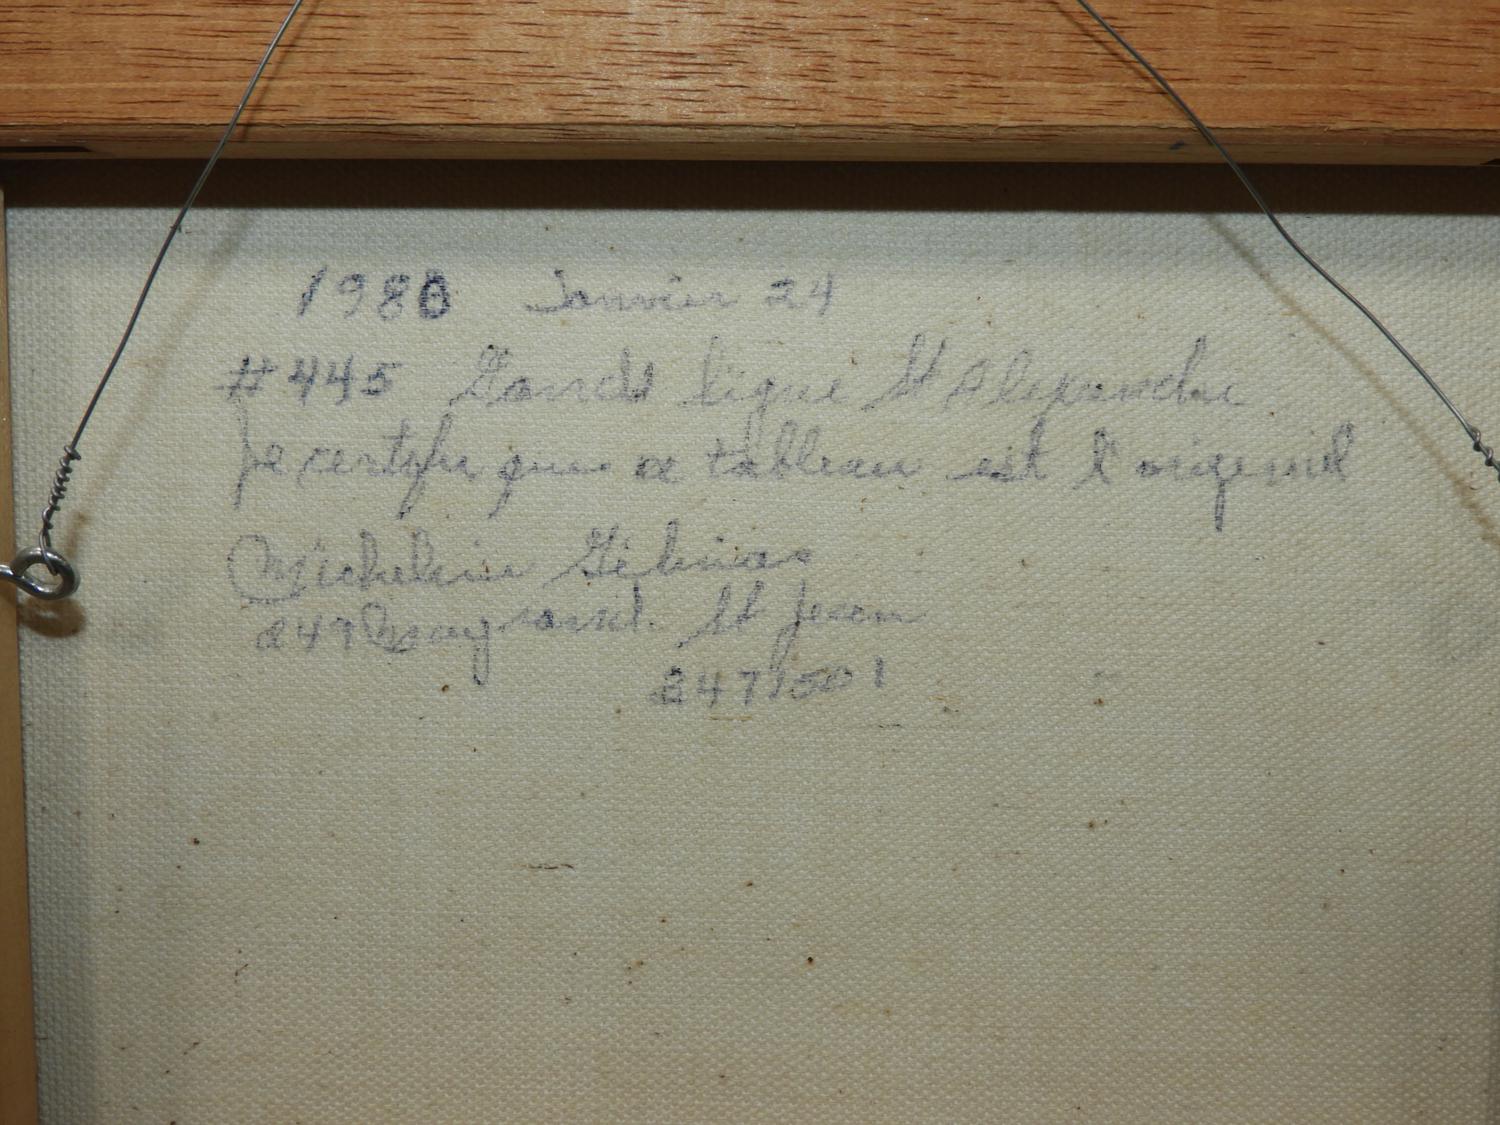 1980 Janvier 24
#445 Grande ligne St Alexandre
je certifie que ce tableau est l'original
Micheline Gélinas
249 St Jean
3471501